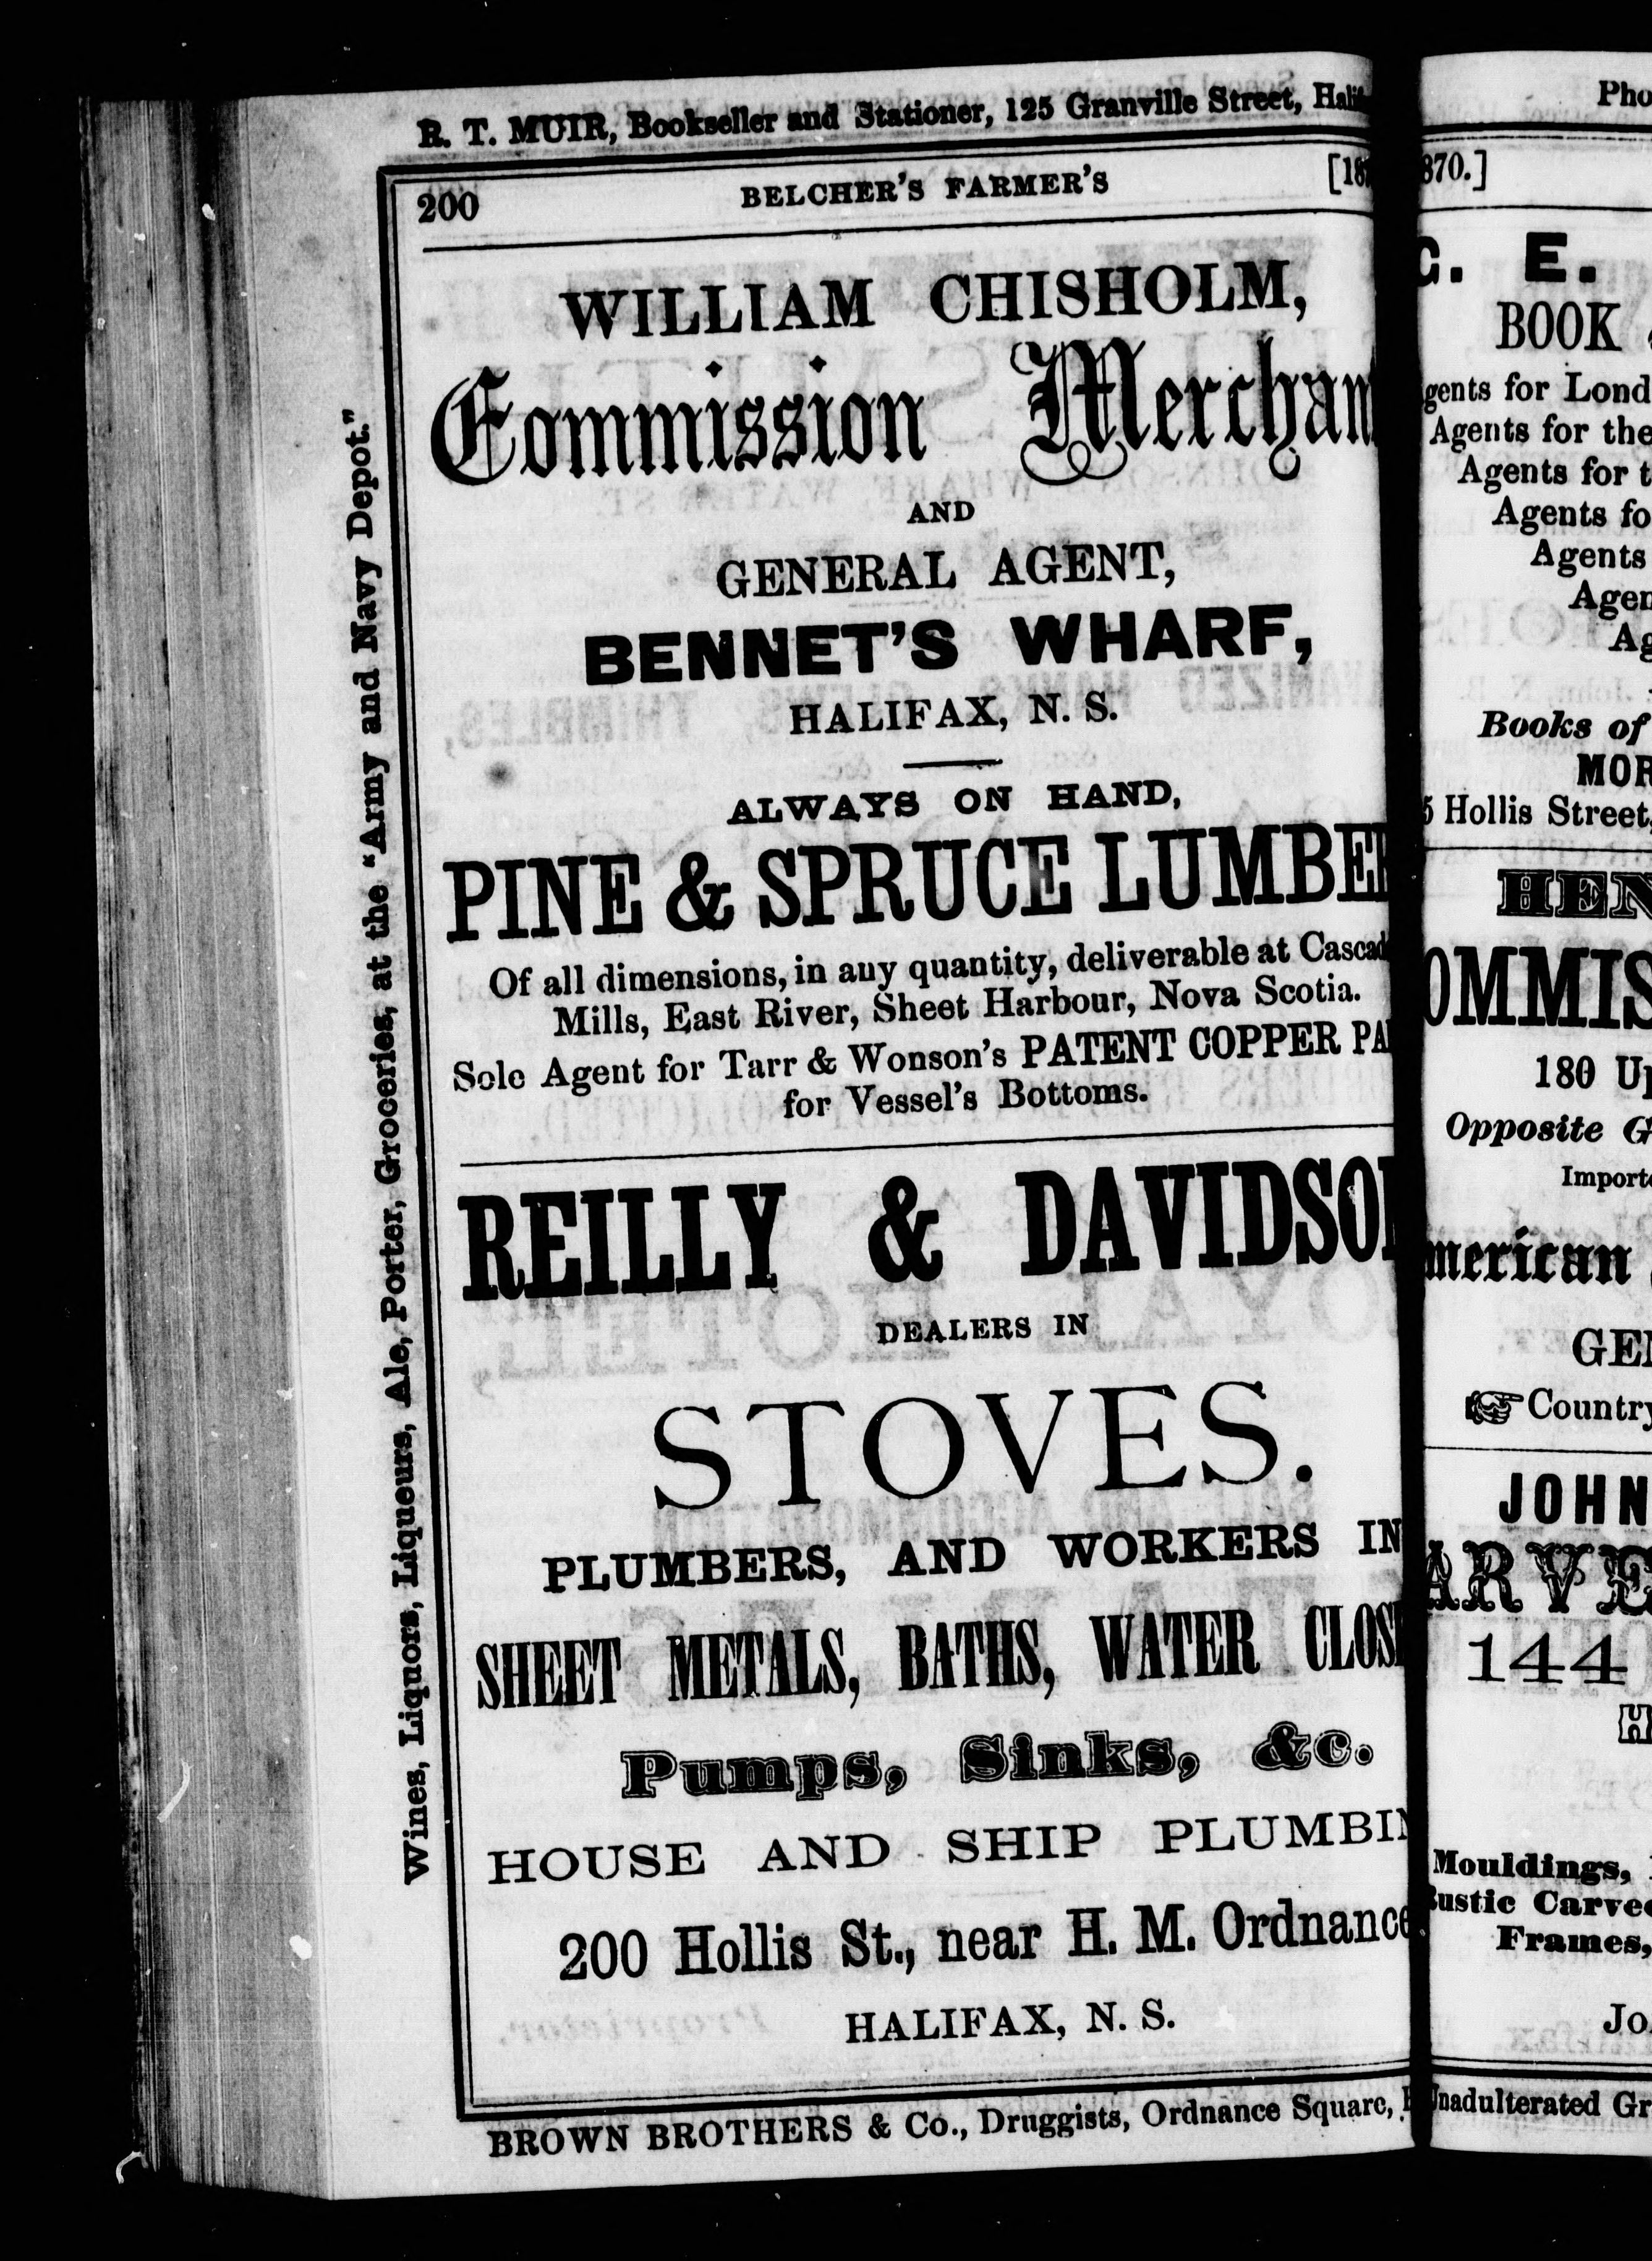 R. T. MUIR, Bookseller and Stationer, 125 Granville Street, Halif
200
BELCHER'S FARMER'S
[18
WILLIAM CHISHOLM,
Commission Merchan
AND
GENERAL AGENT,
BENNET'S WHARF,
HALIFAX, N. S.
ALWAYS ON HAND,
PINE & SPRUCE LUMBER
Of all dimensions, in any quantity, deliverable at Cascad
Mills, East River, Sheet Harbour, Nova Scotia.
Sole Agent for Tarr & Wonson's PATENT COPPER PA
for Vessel's Bottoms.
REILLY & DAVIDSON
DEALERS IN
STOVES.
PLUMBERS, AND WORKERS IN
SHEET METALS, BATHS, WATER CLOSE
Pumps, Sinks, &c.
HOUSE AND SHIP PLUMBIN
200 Hollis St., near H. M. Ordnance
HALIFAX, N. S.
BROWN BROTHERS & Co., Druggists, Ordnance Square, H
Wines, Liquors, Liqueurs, Ale, Porter, Groceries, at the "Army and Navy Depot."
Pho
870.]
C. E.
BOOK
gents for Lond
Agents for the
Agents for t
Agents fo
Agents
Agen
Ag
Books of
MOR
5 Hollis Street,
HEN
OMMIS
180 Up
Opposite G
Importe
merican
GEN
☞ Country
JOHN
ARVE
144
H
Mouldings,
Rustic Carved
Frames,
Jo
Unadulterated Gr